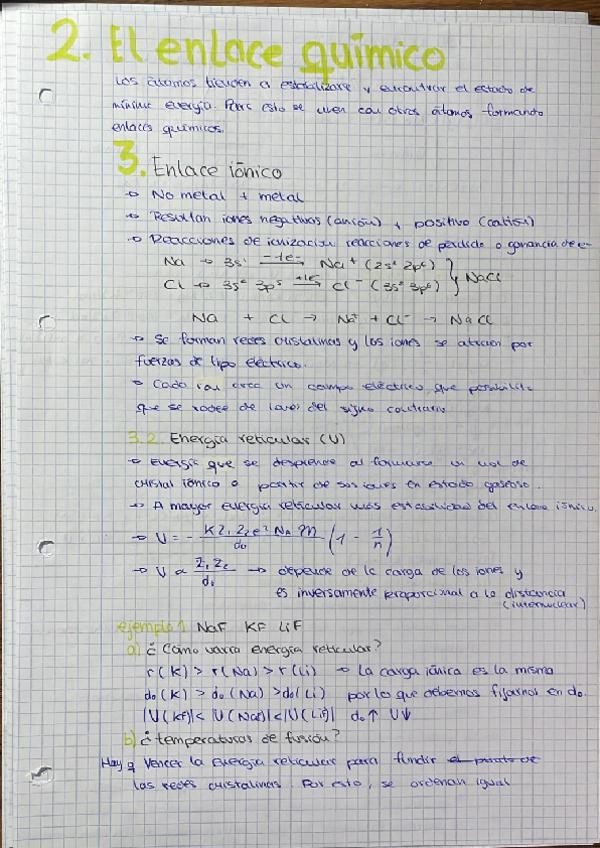 2. El enlace químico
Los átomos tienden a estabilizarse y encontrar el estado de
mínima energía. Para esto se unen con otros átomos formando
enlaces químicos.
3. Enlace iónico
→ No metal + metal
→ Resultan iones negativos (anión) y positivo (catión)
→ Reacciones de ionización reacciones de pérdida o ganancia de e-
Na → 3s¹ -1e-→ Na⁺ (2s² 2p⁶) } NaCl
Cl → 3s² 3p⁵ +1e-→ Cl⁻ (3s² 3p⁶)
Na + Cl → Na⁺ + Cl⁻ → NaCl
→ Se forman redes cristalinas y los iones se atraen por
fuerzas de tipo eléctrico.
→ Cada ion crea un campo eléctrico que posibilita
que se rodee de iones del signo contrario
3.2. Energía reticular (U)
→ Energía que se desprende al formarse un mol de
cristal iónico a partir de sus iones en estado gaseoso.
→ A mayor energía reticular más estabilidad del enlace iónico.
→ U = - K Z₁ Z₂ e² Nₐ M / d₀ (1 - 1/n)
→ U α Z₁ Z₂ / d₀ → depende de la carga de los iones y
es inversamente proporcional a la distancia
(internuclear)
ejemplo 1 NaF KF LiF
a) ¿Cómo varía energía reticular?
r(K) > r(Na) > r(Li) → La carga iónica es la misma
d₀(K) > d₀(Na) > d₀(Li) por lo que debemos fijarnos en d₀.
|U(KF)| < |U(NaF)| < |U(LiF)| d₀↑ U↓
b) ¿temperaturas de fusión?
Hay q vencer la energía reticular para fundir el punto de
las redes cristalinas. Por esto, se ordenan igual